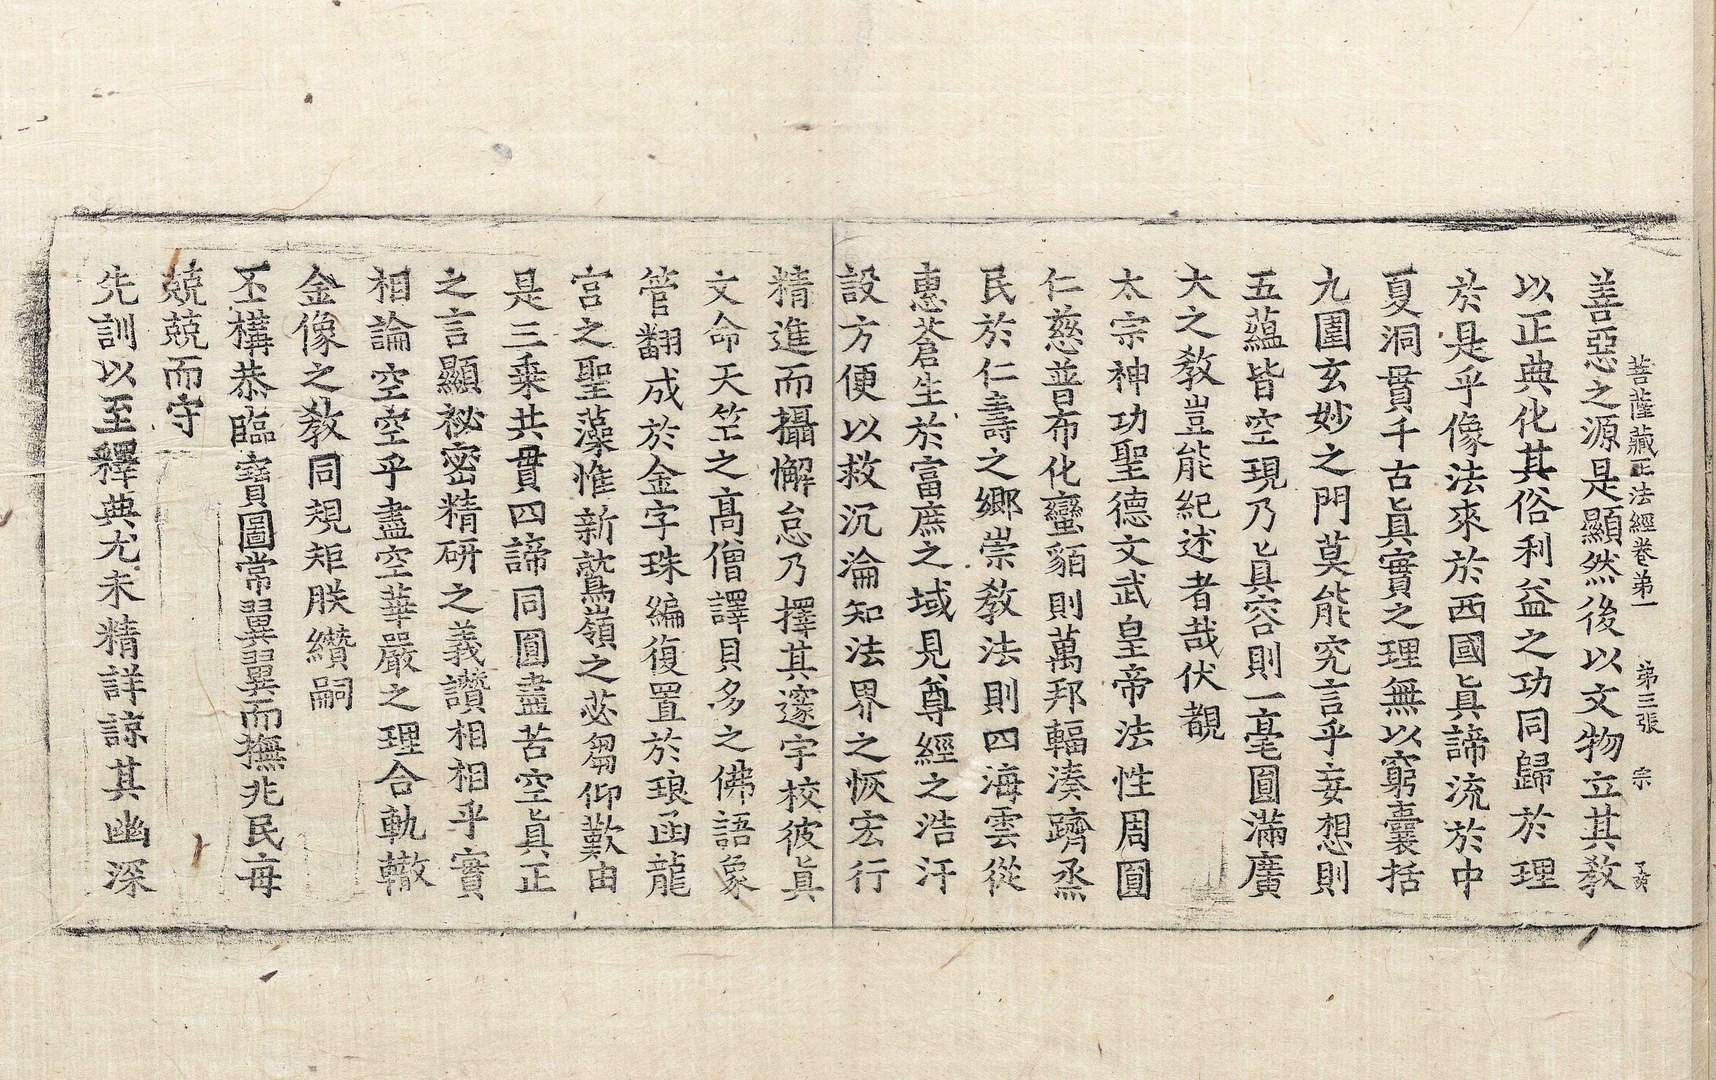 菩薩藏正法經卷苐一　苐三張　宗
善惡之源是顯然後以文物立其敎
以正典化其俗利益之功同歸於理
於是乎像法來於西國真諦流於中
夏洞貫千古真實之理無以窮囊括
九圍玄妙之門莫能究言乎妄想則
五蘊皆空現乃真容則一毫圓滿廣
大之敎豈能紀述者哉伏覩
太宗神功聖德文武皇帝法性周圓
仁慈普布化蠻貊則萬邦輻湊躋烝
民於仁壽之鄉崇敎法則四海雲從
惠蒼生於富庶之域見尊經之浩汗
設方便以救沉淪知法界之恢宏行
精進而攝懈怠乃擇其邃宇校彼真
文命天竺之高僧譯貝多之佛語象
管翻成於金字珠編復置於琅函龍
宮之聖藻惟新鷲嶺之苾芻仰歎由
是三乘共貫四諦同圓盡苦空真正
之言顯祕密精研之義讚相相乎實
相論空空乎盡空華嚴之理合軌轍
金像之敎同規矩朕纘嗣
丕構恭臨寶圖常翼翼而撫兆民每
兢兢而守
先訓以至釋典尤未精詳諒其幽深